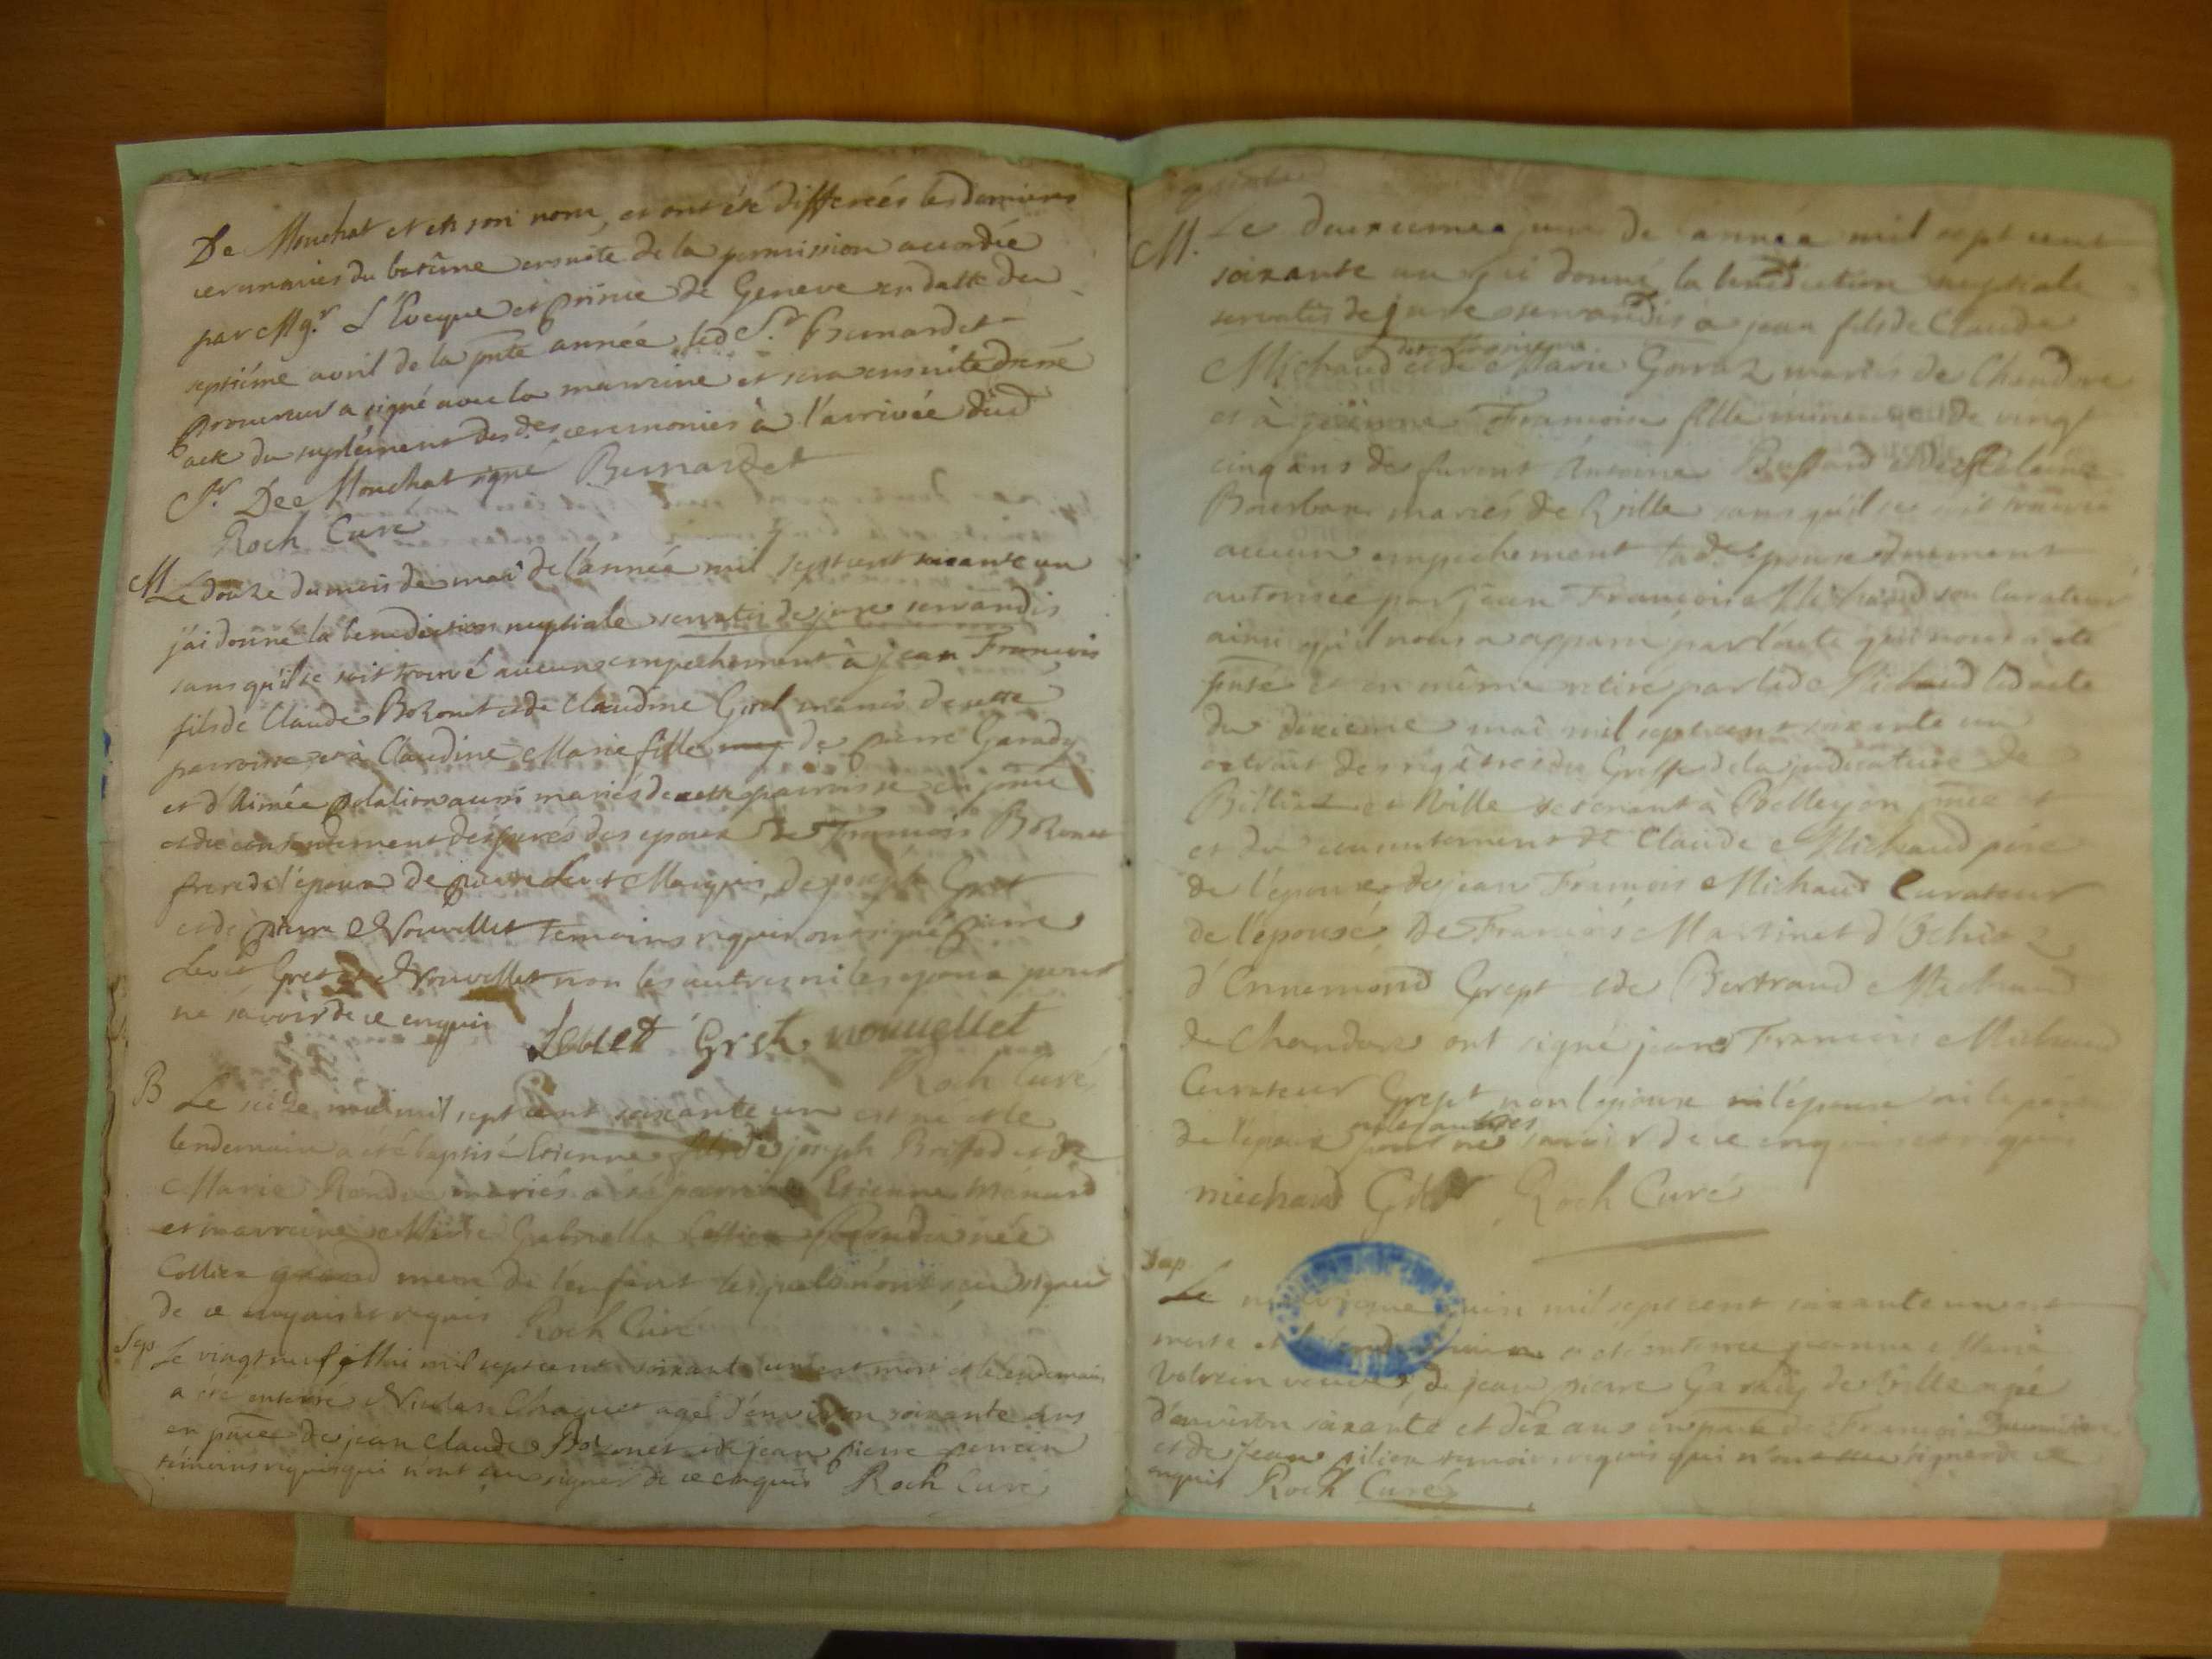 De Mouchat et en son nom, et ont été differées les dernieres
ceremonies du batême ensuite de la permission accordée
par Mgr. L'Eveque et prince de Geneve en datte du
septiéme avril de la pnte année led Sr. Bunardet
procureur a signé avec la marreine et sera ensuite dressé
acte du suplément des des. ceremonies à l'arrivée dud
Sr. Dee Mouchat signé Bunardet
Roch Curé
M Le douze du mois de mai de l'année mil sept cent soixante un
j'ai donné la benediction nuptiale servatis de jure servandis
sans qu'il se soit trouvé aucun empechement à jean François
fils de Claude Bozonet et de Claudine Gret mariés de cette
parroisse et à Claudine Marie fille de pierre Garady
et d'Aimée polalion aussi mariés de cette parroisse en pnce
et du consentement des peres des epoux de François Bozonet
frere de l'epoux de pierre Levet Marquis, de joseph Gret
et de pierre Nouvellet temoins requis ont signé pierre
Levet Gret et Nouvellet non les autres ni les epoux pour
ne savoir de ce enquis Levet Gret nouvellet
Roch Curé
B Le seize mai mil sept cent soixante un est né et le
lendemain a été baptisé Etienne fils de joseph et de
Marie mariés a été parrain Etienne
et marraine Gabrielle née
Collier grand mere de l'enfant lesquels n'ont su signer
de ce enquis et requis Roch Curé
Sep Le vingt neuf Mai mil sept cent soixante un est mort et le lendemain
a été enterré Nicolas Chaquet agé d'environ soixante ans
en pnce de jean Claude Bozonet et de jean pierre perrein
témoins requis qui n'ont su signer de ce enquis Roch Curé
M. Le deuxieme juin de l'année mil sept cent
soixante un j'ai donné la benediction nuptiale
servatis de jure servandis a jean fils de Claude
Michaud et de Marie Gorraz mariés de Chandore
et à Françoise fille mineure de vingt
cinq ans de furent Antoine Buffard et de
Bourbon mariés de Ville sans qu'il se soit trouvé
aucun empechement lad. epouse duement
autorisée par jean François Michaud son curateur
ainsi qu'il nous a apparu par l'acte qui nous a été
pnté et en même retiré par led Michaud led acte
du dixieme mai mil sept cent soixante un
extrait des regîtres du Greffe de la judicature de
Billiat et Ville en pnce et
et du consentement de Claude Michaud pére
de l'epoux, de jean François Michaud Curateur
de l'epouse, De François Martinet d'Ochiaz
d'Ennemond Grept et de Bertrand Michaud
de Chandore ont signé jean François Michaud
Curateur Grept non l'epoux ni l'epouse ni le pere
de l'epoux ni les autres pour ne savoir de ce enquis et requis
michaud Gret Roch Curé
Sep
Le juin mil sept cent soixante un est
morte et le lendemain a été enterrée jeanne Marie
veuve de jean pierre Garady de Ville agée
d'environ soixante et dix ans en pnce de François
et de jean temoins requis qui n'ont su signer de ce
enquis Roch Curé